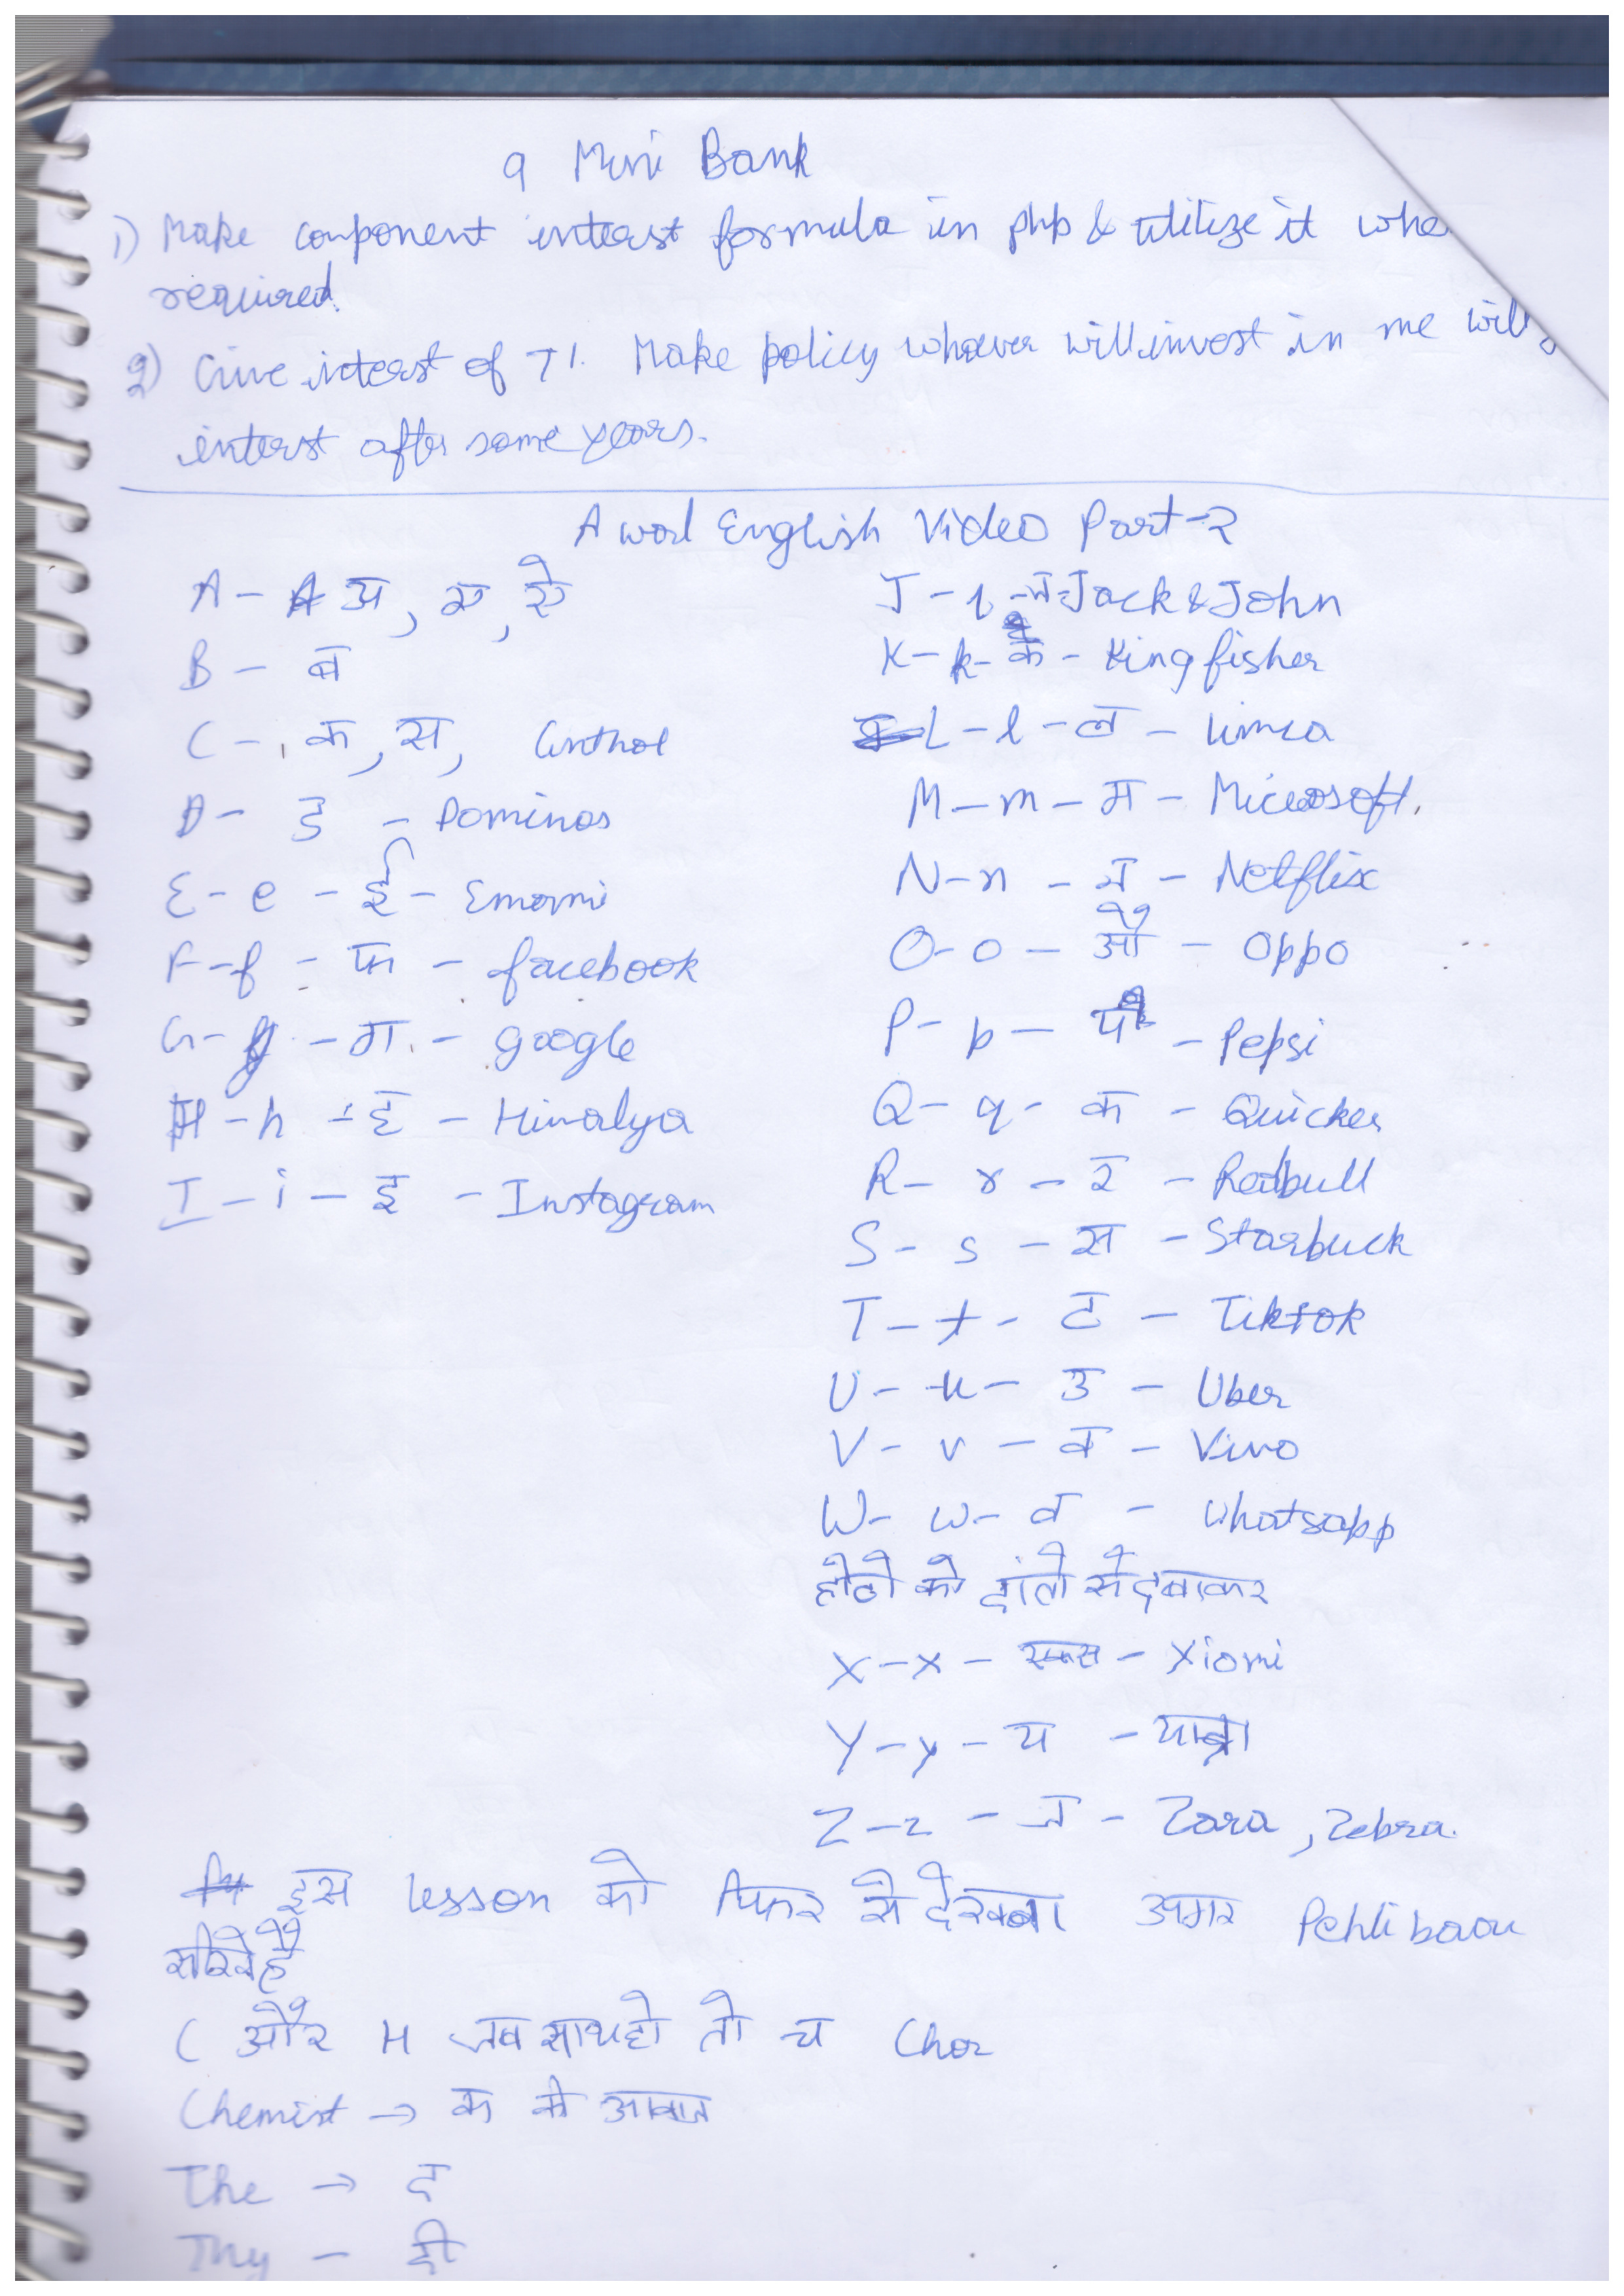 9 Mini Bank
1) Make component interst formula in php & utilize it whe
required.
2) Give interst of 7%. Make policy whoever will invest in me will
interst after some years.
A word English Video Part-2
A - अ, ए, ऐ
B - ब
C - क, स, Cinthol
D - ड - Dominos
E - e - ई - Emami
F - f - फ - facebook
G - g - ग - google
H - h - ह - Himalya
I - i - इ - Instagram
J - ज - Jack & John
K - k - क - Kingfisher
L - l - ल - Limca
M - m - म - Microsoft.
N - n - न - Netflix
O - o - औ - Oppo
P - p - प - Pepsi
Q - q - क - Quicker
R - r - र - Redbull
S - s - स - Starbuck
T - t - ट - Tiktok
U - u - उ - Uber
V - v - व - Vivo
W - w - व - Whatsapp
होठो को दांतो से दबाकर
X - x - क्स - Xiomi
Y - y - य - यात्रा
Z - z - ज - Zara, Zebra.
इस lesson को फिर से देखना अगर Pehli baar
सीखे है
C और H जब साथ हो तो च Chor
Chemist → क की आवाज
The → द
Thy - दी